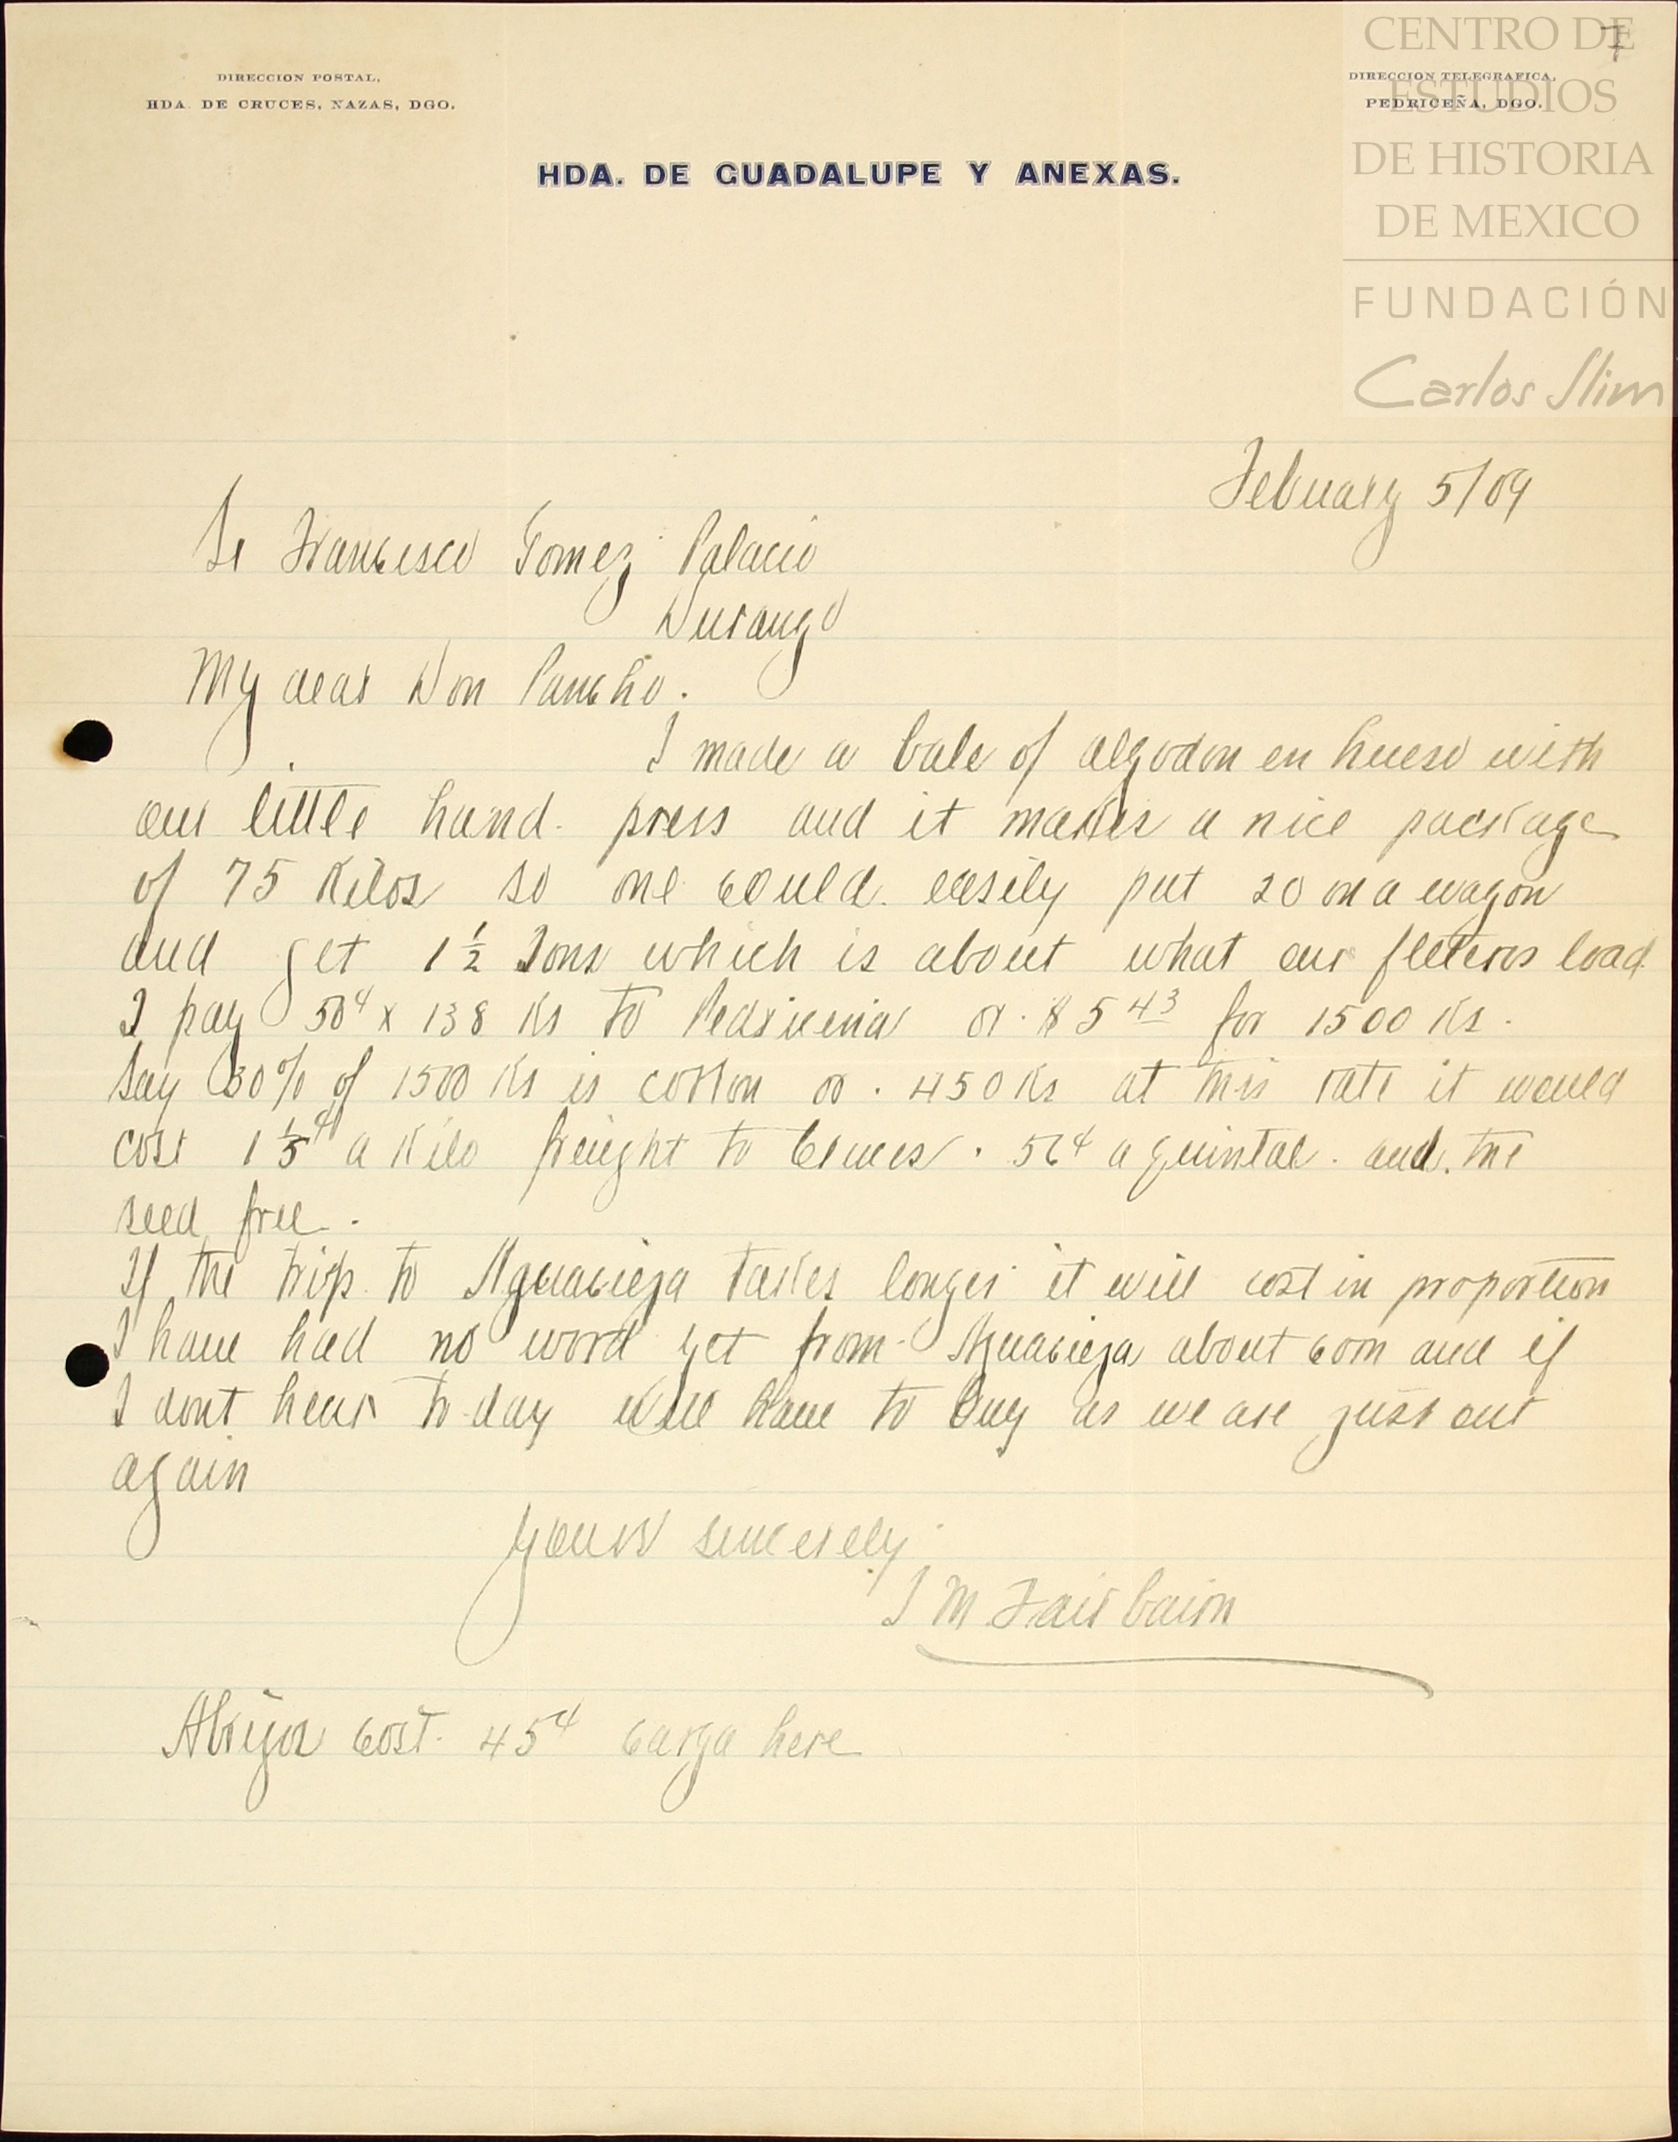 CENTRO DE
ESTUDIOS
DE HISTORIA
DE MEXICO
FUNDACIÓN
Carlos Slim
7
DIRECCION POSTAL,
HDA. DE CRUCES, NAZAS, DGO.
DIRECCION TELEGRAFICA,
PEDRICEÑA, DGO.
HDA. DE GUADALUPE Y ANEXAS.
Febuary 5/09
Sr Francisco Gomez Palacio
Durango
My dear Don Pancho.
I made a bale of algodon en hueso with
our little hand press and it makes a nice package
of 75 Kilos so one could easily put 20 on a wagon
and get 1 1/2 Tons which is about what our fleteros load
I pay 50¢ x 138 Ks to Pedricena or $5 43 for 1500 Ks.
Say 30% of 1500 Ks is cotton or 450 Ks at this rate it would
cost 1 1/5¢ a Kilo freight to Cruces. 56¢ a quintal and the
seed free.
If the trip to Aguacieja takes longer it will cost in proportion
I have had no word yet from Aguacieja about corn and if
I dont hear to-day will have to buy as we are just out
again
Yours sincerely
J M Fairbairn
cost 45¢ carga here